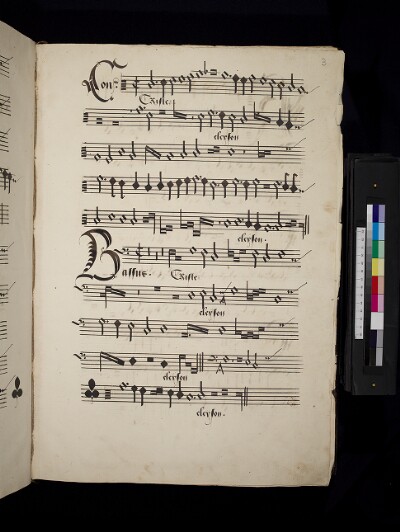 3
Con:
Christe
eleyson
eleyson.
Bassus.
Christe
eleyson
eleyson
eleyson.